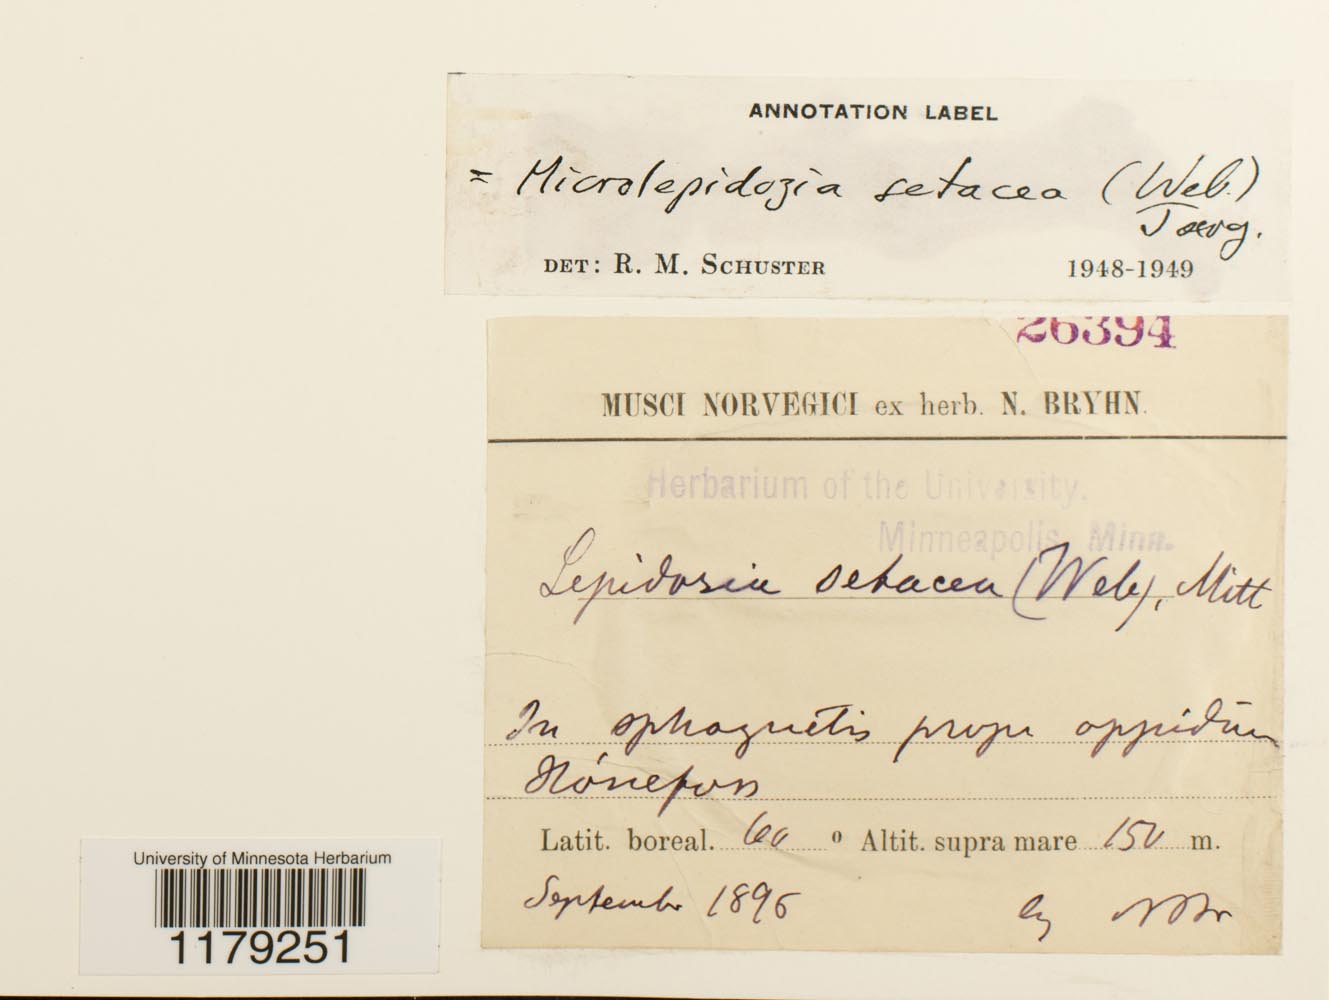 ANNOTATION LABEL
= Microlepidozia setacea (Web.)
Joerg.
DET: R. M. SCHUSTER 1948-1949
26394
MUSCI NORVEGICI ex herb. N. BRYHN.
Herbarium of the University.
Minneapolis, Minn.
Lepidozia setacea (Web), Mitt
In sphagnetis prope oppidūm
Hönefoss
Latit. boreal. 60 º Altit. supra mare 150 m.
September 1896
University of Minnesota Herbarium
1179251